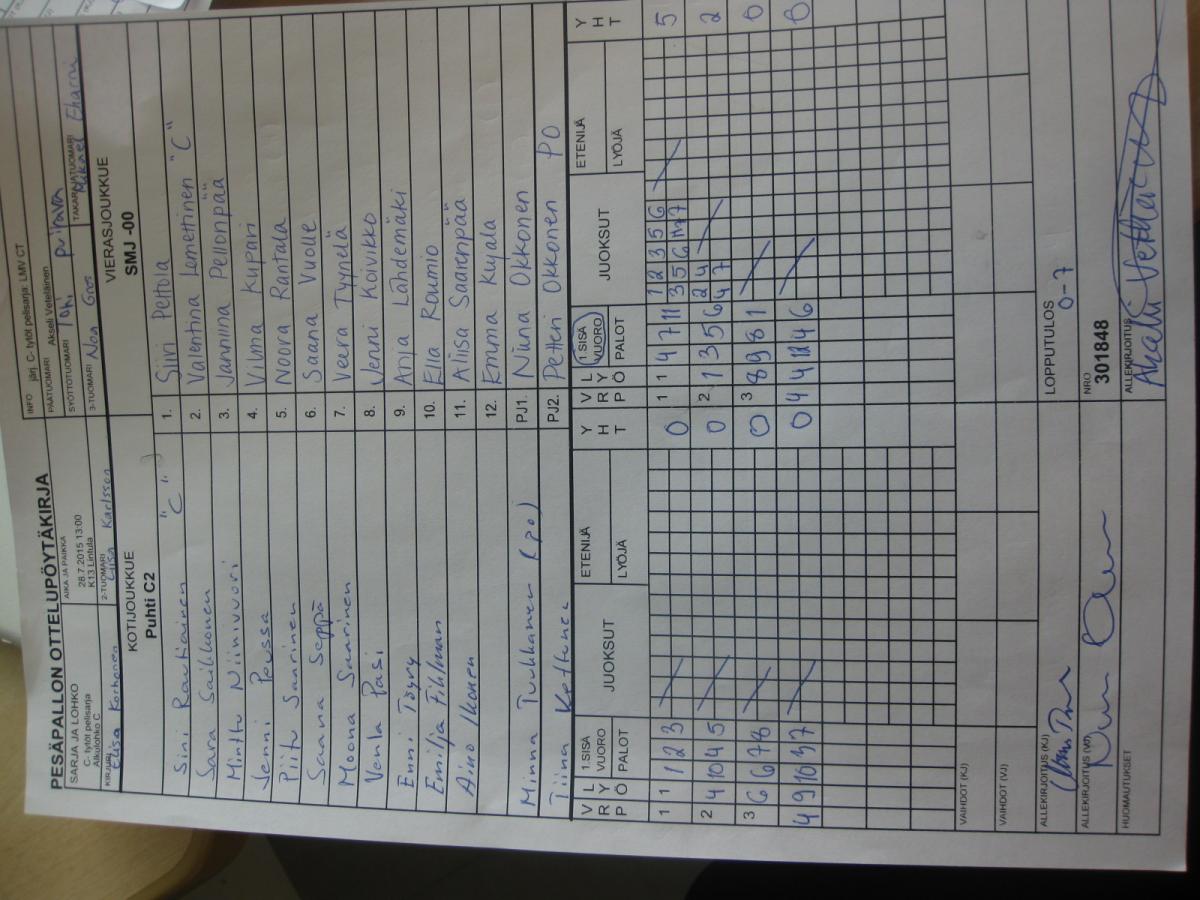 PESÄPALLON OTTELUPÖYTÄKIRJA
INFO järj. C- tytöt pelisarja: LMV CT
SARJA JA LOHKO
C- tytöt pelisarja
Alkulohko C
AIKA JA PAIKKA
28.7.2015 13:00
K13 Lintula
PÄÄTUOMARI Akseli Veteläinen
SYÖTTÖTUOMARI
KIRJURI
Elisa Korhonen
2-TUOMARI
Elisa Karlsson
3-TUOMARI
TAKARAJATUOMARI
KOTIJOUKKUE
Puhti C2
VIERASJOUKKUE
SMJ -00
Sini Rautiainen "C"
1. Siiri Peltola
Sara Saikkonen
2. Valentina Lemettinen "C"
Minttu Niinivuori
3. Janniina Pellonpää
Jenni Poussa
4. Vilma Kupari
Piitu Saarinen
5. Noora Rantala
Saana Seppä
6. Saana Vuolle
Moona Saarinen
7. Veera Tynelä
Venla Pasi
8. Jenni Koivikko
Enni Töyry
9. Anja Lähdemäki
Emilja Fihlman
10. Ella Roumio
Aino Ikonen
11. Aliisa Saarenpää
12. Emma Kujala
Minna Tuukkanen (po)
PJ1. Niina Okkonen
Tiina Kettunen
PJ2. Petteri Okkonen PO
V R P
L Y Ö
1.SISÄ VUORO
PALOT
JUOKSUT
ETENIJÄ
LYÖJÄ
Y H T
V R P
L Y Ö
1.SISÄ VUORO
PALOT
JUOKSUT
ETENIJÄ
LYÖJÄ
Y H T
1 1 1 2 3 0
1 1 4 7 11 1 2 3 5 6 5
2 4 10 4 5 0
2 1 3 5 6 2 4 2
4 7
3 6 6 7 8 0
3 8 9 8 1 0
4 9 10 3 7 0
4 4 12 4 6 0
VAIHDOT (KJ)
VAIHDOT (VJ)
ALLEKIRJOITUS (KJ)
LOPPUTULOS
0-7
ALLEKIRJOITUS (VJ)
NRO
301848
HUOMAUTUKSET
ALLEKIRJOITUS